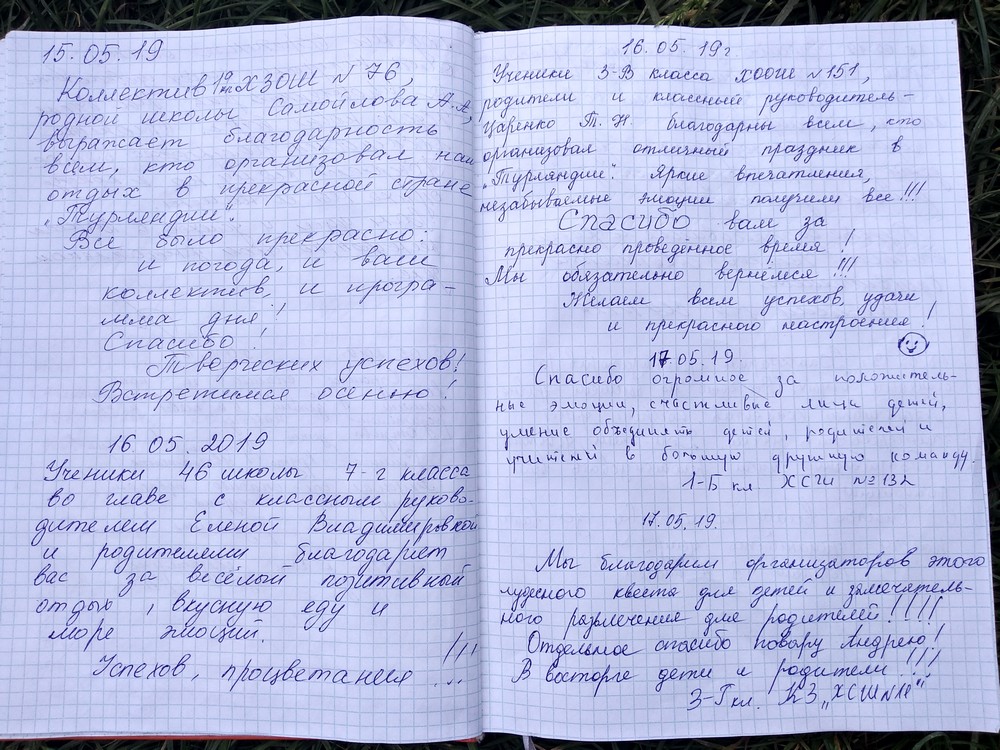 15.05.19
Коллектив ХЗОШ № 76,
родной школы Самойлова А.А,
выражает благодарность
всем, кто организовал наш
отдых в прекрасной стране
"Турляндии".
Все было прекрасно:
и погода, и ваш
коллектив, и програ-
мма дня!
Спасибо!
Творческих успехов!
Встретимся осенью!
16.05.2019
Ученики 46 школы 7-г класса
во главе с классным руково-
дителем Еленой Владимировной
и родителями благодарят
вас за весёлый позитивный
отдых, вкусную еду и
море эмоций.
Успехов, процветания !!!
16.05.19г
Ученики 3-В класса ХООШ №151,
родители и классный руководитель-
Царенко Т.Н. благодарны всем, кто
организовал отличный праздник в
"Турляндии". Яркие впечатления,
незабываемые эмоции получили все!!!
Спасибо вам за
прекрасно проведённое время!
Мы обязательно вернёмся!!!
Желаем всем успехов, удачи
и прекрасного настроения!
17.05.19.
Спасибо огромное за положитель-
ные эмоции, счастливые лица детей,
умение объединять детей, родителей и
учителей в большую дружную команду.
1-Б кл. ХСШ № 132
17.05.19.
Мы благодарим организаторов этого
чудесного квеста для детей и замечатель-
ного развлечения для родителей!!!!
Отдельное спасибо повару Андрею!
В восторге дети и родители!!!
3-Г кл. КЗ "ХСШ №16"